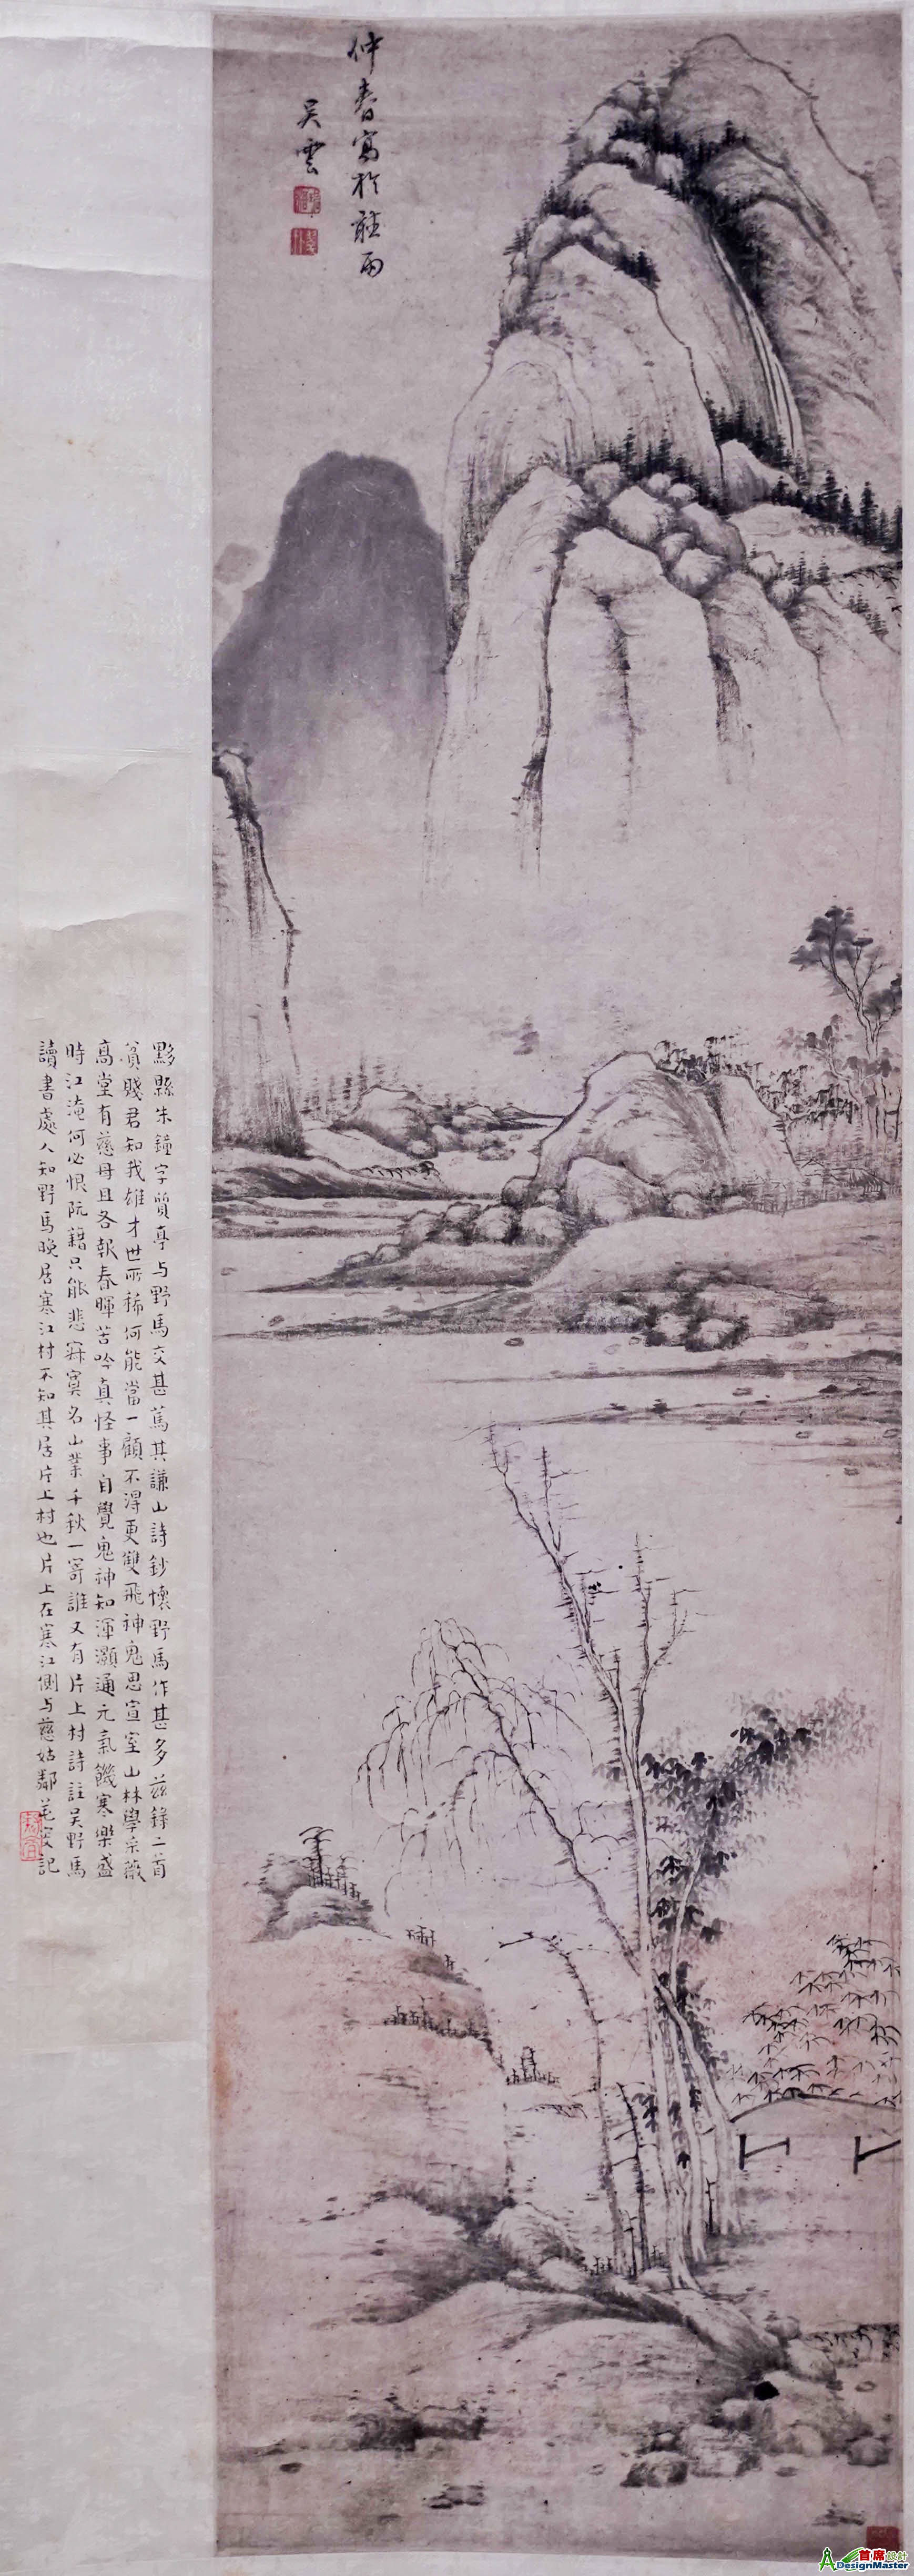 仲春寫於聽雨
吳雲
黟縣朱鐘字質亭与野馬交甚篤其謙山詩鈔懷野馬作甚多茲錄二首
貧賤君知我雄才世所稀何能當一顧不得更雙飛神鬼思宣室山林學采薇
高堂有慈母且各報春暉苦吟真怪事自覺鬼神知渾灝通元氣饑寒樂盛
時江淹何必恨阮籍只能悲寂寞名山業千秋一寄誰又有片上村詩註吳野馬
讀書處人知野馬晚居寒江村不知其居片上村也片上在寒江側与慈姑鄰 記
首席設計
ADesignMaster